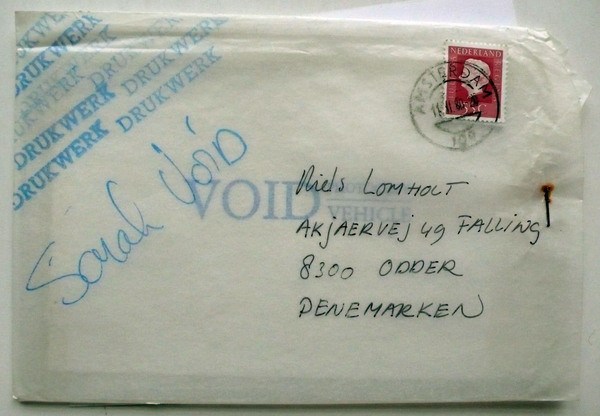 DRUKWERK
DRUKWERK
DRUKWERK DRUKWERK
DRUKWERK DRUKWERK
DRUKWERK DRUKWERK
NEDERLAND
AMSTERDAM
Sarah Void
VOID
VEHICLE
Niels Lomholt
Akjaervej 49 Falling
8300 Odder
Denemarken